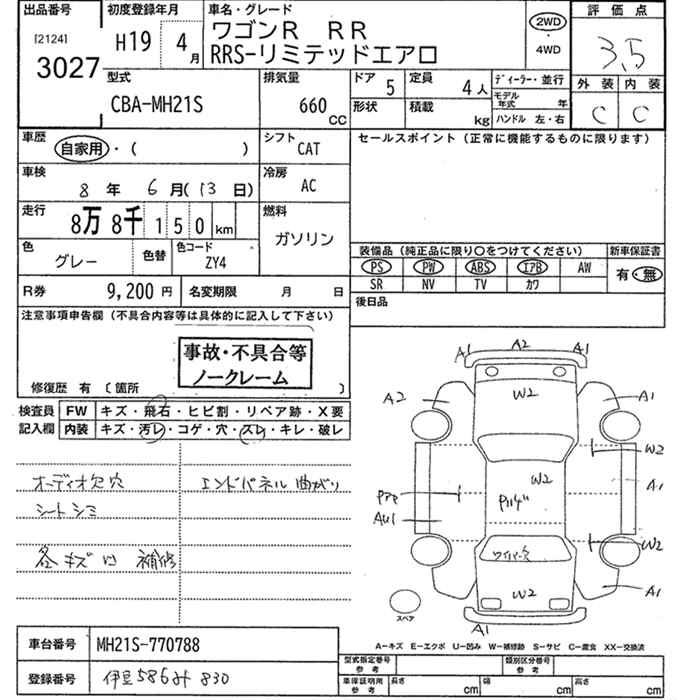 出品番号
[2124]
3027
初度登録年月
H19 4月
車名・グレード
ワゴンR RR
RRS-リミテッドエアロ
2WD
・
4WD
評価点
3.5
外装 内装
C C
型式
CBA-MH21S
排気量
660
CC
ドア 5
形状
定員 4人
積載 kg
ディーラー・並行
モデル年式 年
ハンドル 左・右
車歴
自家用・( )
シフト
CAT
車検
8年 6月(13日)
冷房
AC
走行
8万8千150km
燃料
ガソリン
色
グレー
色替
色コード
ZY4
セールスポイント (正常に機能するものに限ります)
装備品 (純正品に限り○をつけてください)
新車保証書
PS PW ABS エアB AW
有・無
SR NV TV カワ
後日品
R券 9,200円
名変期限 月 日
注意事項申告欄 (不具合内容等は具体的に記入して下さい)
事故・不具合等
ノークレーム
修復歴 有 〔箇所 〕
検査員
記入欄
FW キズ・飛石・ヒビ割・リペア跡・X要
内装 キズ・汚レ・コゲ・穴・スレ・キレ・破レ
オーディオ欠穴
エンドパネル曲がり
シートシミ
各キズ凹 補修
A1 A2 A1
W2
A2
A1
W2
W2
A1
AU1
W2
W2
A1
A1
スペア
A―キズ E―エクボ U―凹み W―補修跡 S―サビ C―腐食 XX―交換済
車台番号 MH21S-770788
登録番号
830
型式指定番号
参考
類別区分番号
参考
車庫証明用
参考
長さ cm
幅 cm
高さ cm